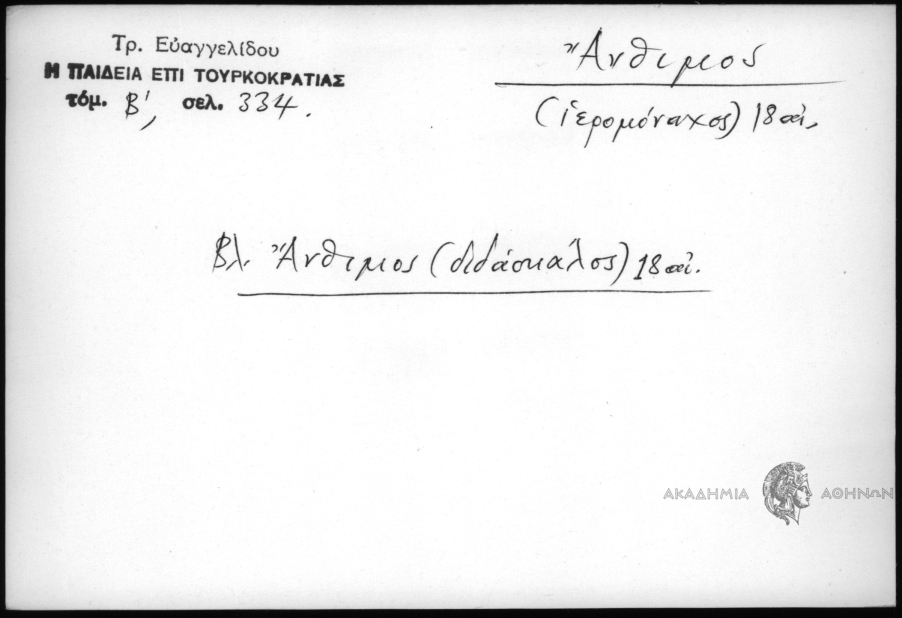 Τρ. Εὐαγγελίδου
Η ΠΑΙΔΕΙΑ ΕΠΙ ΤΟΥΡΚΟΚΡΑΤΙΑΣ
τόμ. Β', σελ. 334.
Ἄνθιμος
(ἱερομόναχος) 18 αἰ.
Βλ. Ἄνθιμος (διδάσκαλος) 18 αἰ.
ΑΚΑΔΗΜΙΑ ΑΘΗΝΩΝ